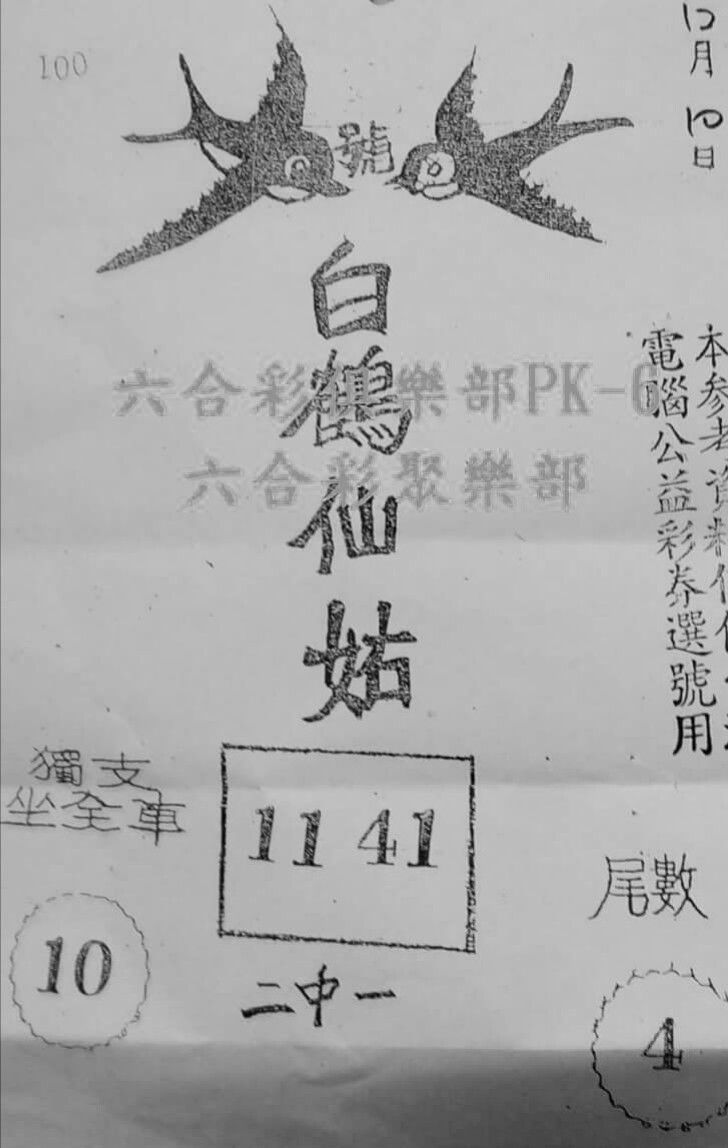 100
號
白鶴仙姑
六合彩聚樂部PK-6
六合彩聚樂部
本参考資料
電腦公益彩券選號用
獨支
坐全車
10
11 41
二中一
尾數
4